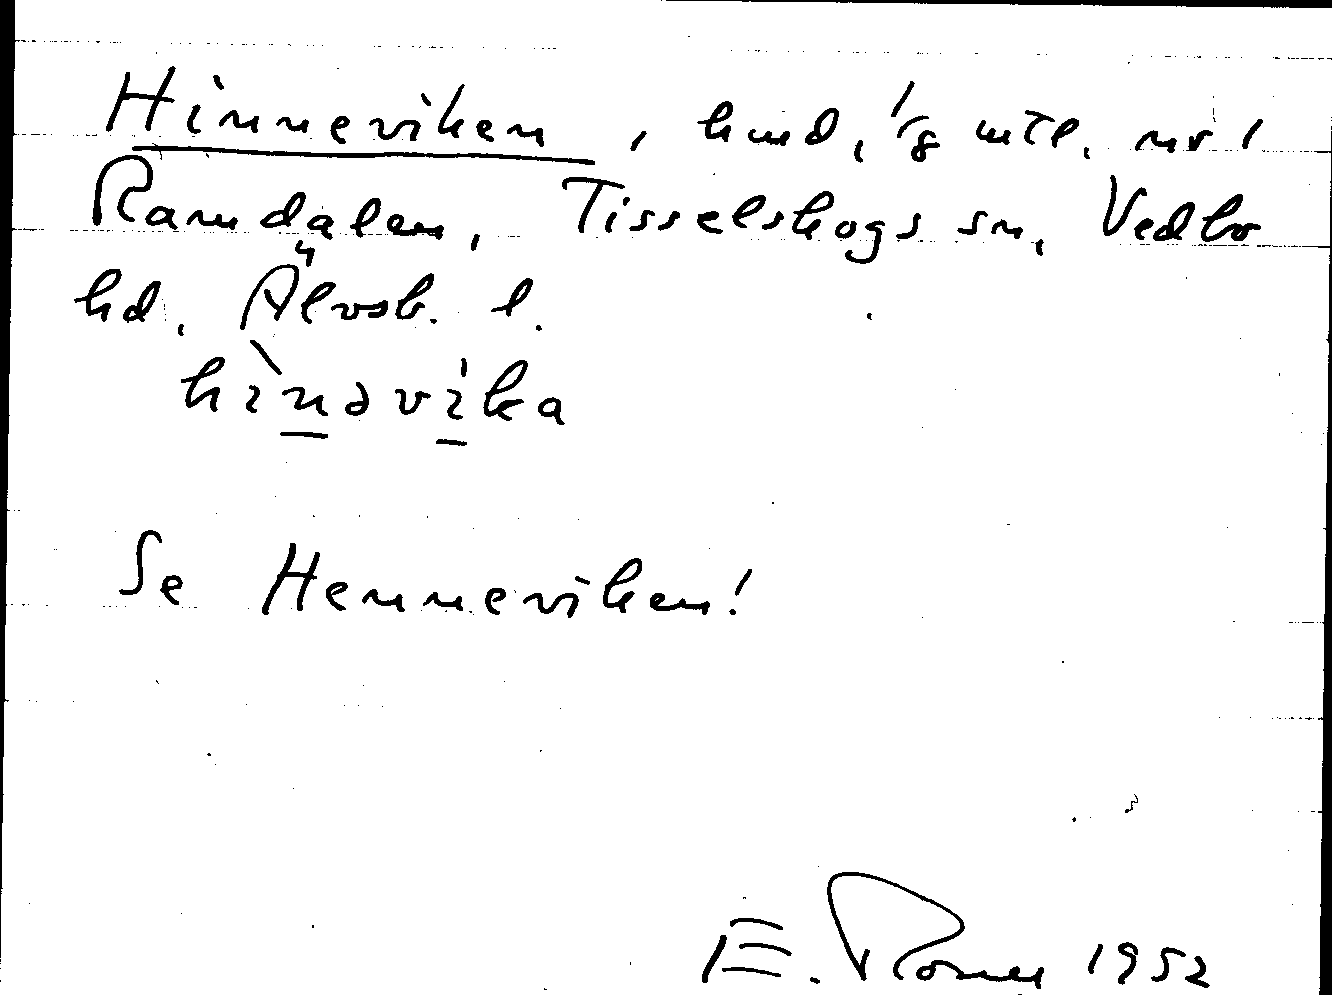 Hinneviken, hmd, 1/8 mtl. nr 1
Ramdalen, Tisselskogs sn, Vedbo
hd, Älvsb. l.
hìnəvika
Se Henneviken!
E. 1952